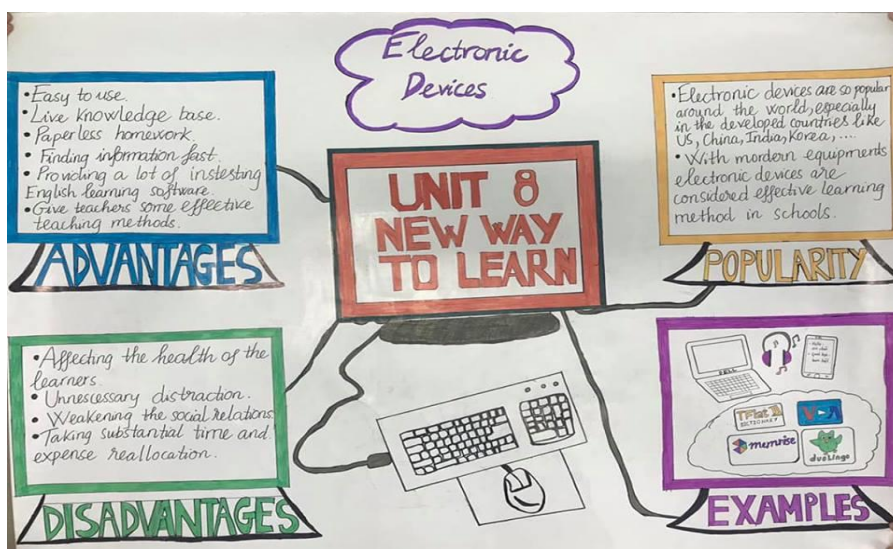 Electronic
Devices
• Easy to use.
• Live knowledge base.
• Paperless homework.
• Finding information fast.
• Providing a lot of instesting
English learning software.
• Give teachers some effective
teaching methods.
ADVANTAGES
UNIT 8
NEW WAY
TO LEARN
• Electronic devices are so popular
around the world, especially
in the developed countries like
US, China, India, Korea, ....
• With mordern equipments
electronic devices are
considered effective learning
method in schools.
POPULARITY
• Affecting the health of the
learners.
• Unnecessary distraction.
• Weakening the social relations.
• Taking substantial time and
expense reallocation.
DISADVANTAGES
DELL
TFlat
DICTIONARY
VOA
memrise
duolingo
EXAMPLES